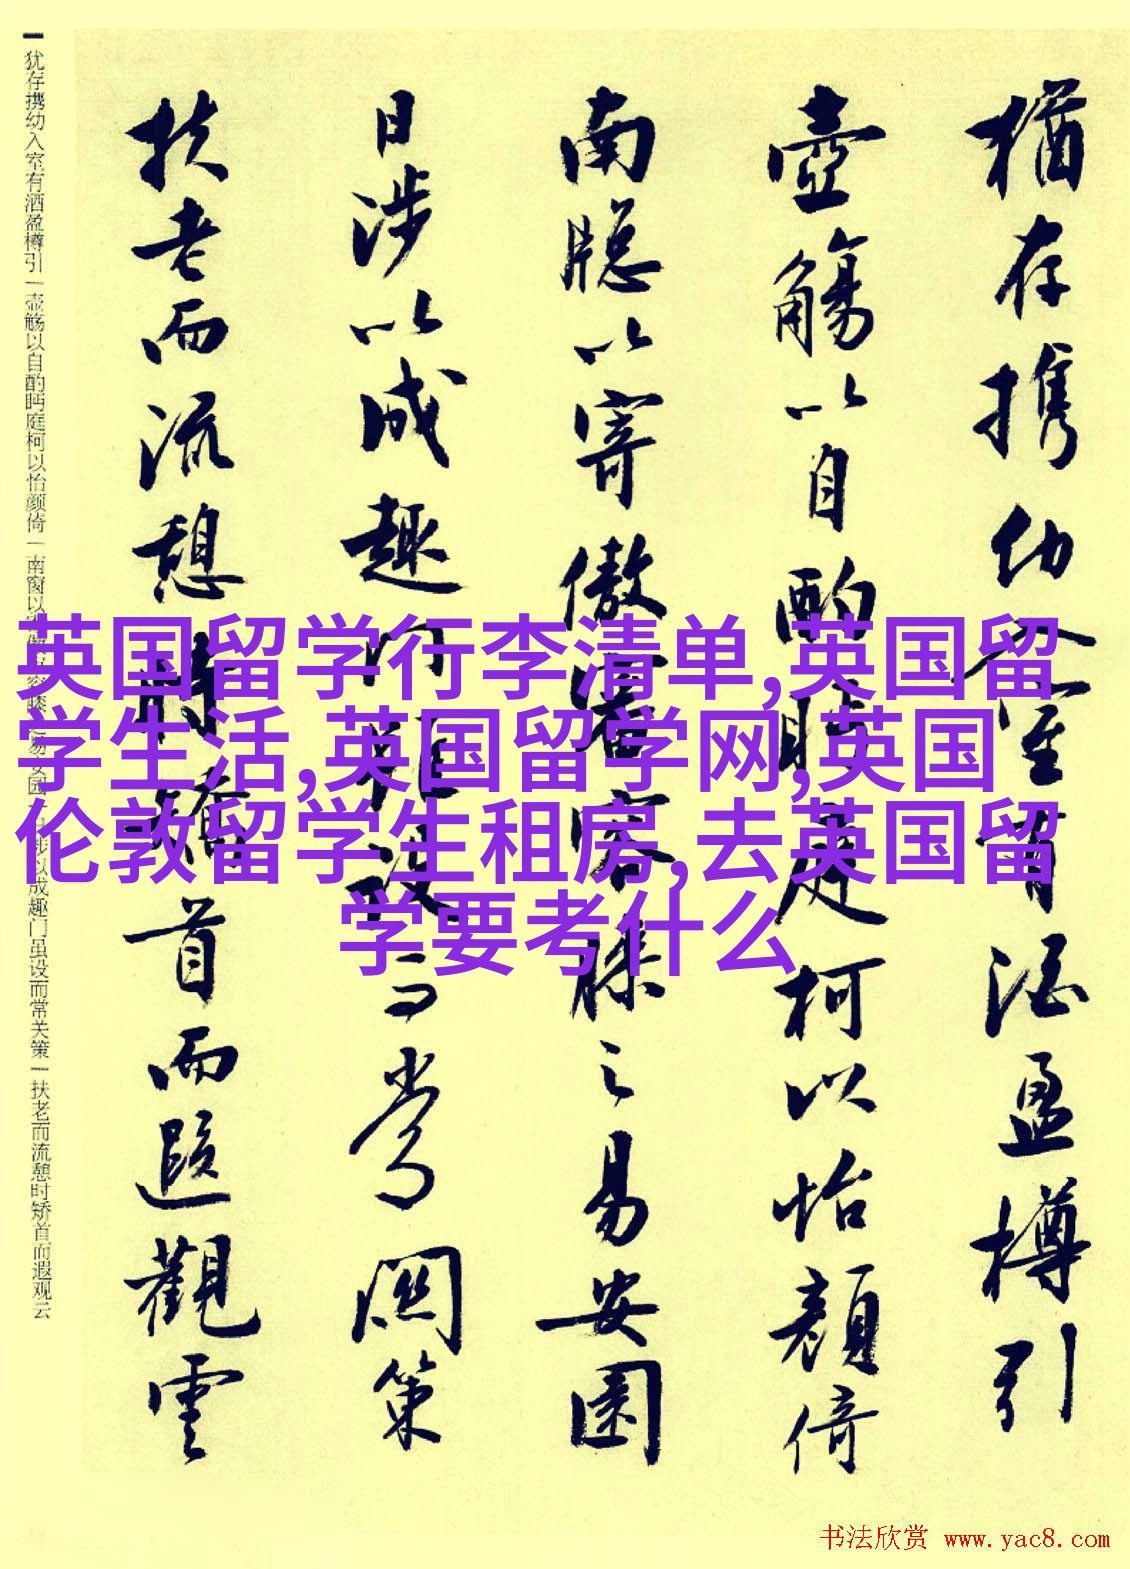 猶存携幼入室有酒盈樽引
壺觴以自酌眄庭柯以怡顔倚
南牕以寄傲審容膝之易安園
日涉以成趣門雖設而常関策
扶老而流憩時矯首而遐觀雲
犹存携幼入室有洒盈樽引|壶觞以自酌眄庭柯以怡颜倚|南窗以寄傲审容膝之易安园|日涉以成趣门虽设而常关策|扶老而流憩时矫首而遐观云
英国留学行李清单,英国留
学生活,英国留学网,英国
伦敦留学生租房,去英国留
学要考什么
书法欣赏 www.yac8.com